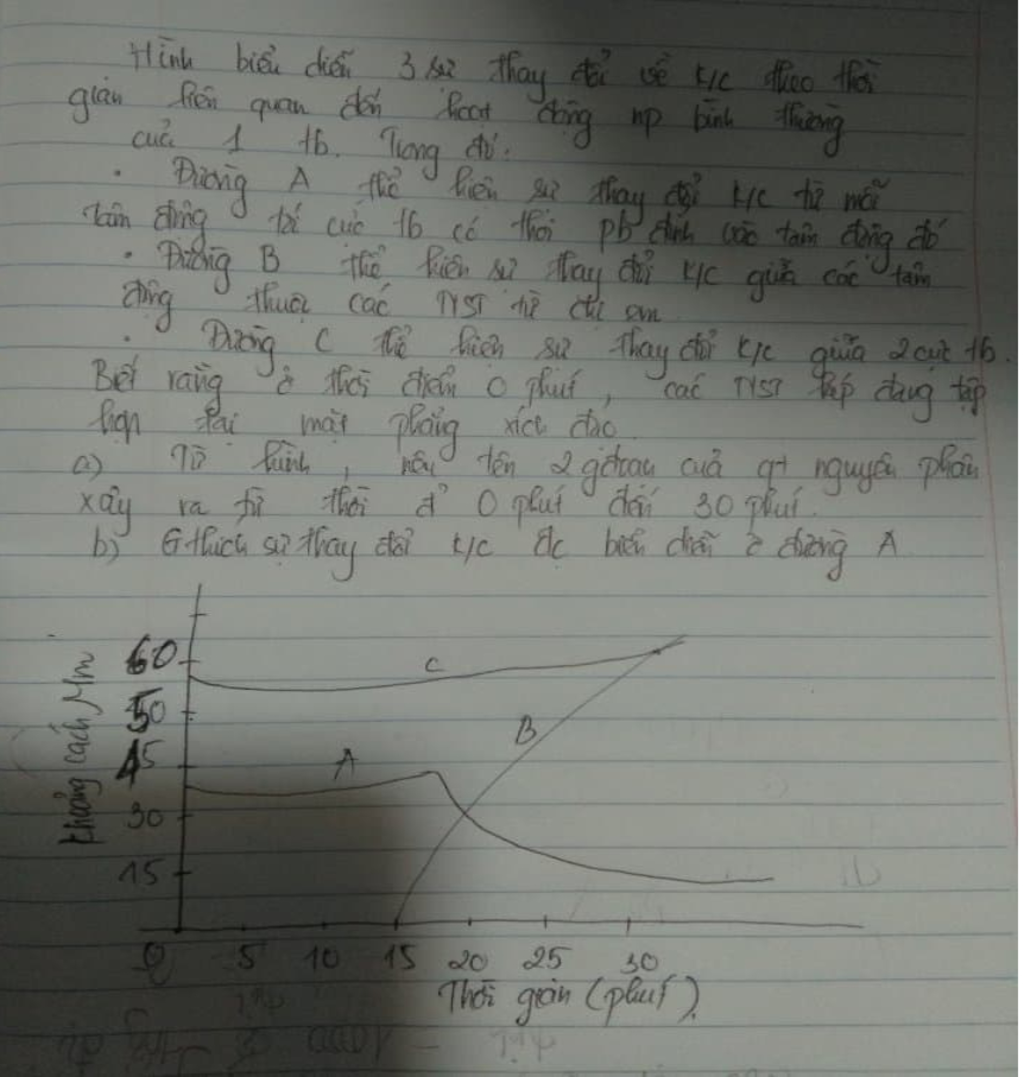 Hình biểu diễn 3 sự thay đổi về k/c theo thời
gian liên quan đến hoạt động np bình thường
của 1 tb. Trong đó:
• Đường A thể hiện sự thay đổi k/c từ mỗi
tâm động tới cực tb có thoi pb đính vào tâm động đó
• Đường B thể hiện sự thay đổi k/c giữa các tâm
động thuộc các NST tử chị em
• Đường C thể hiện sự thay đổi k/c giữa 2 cực tb.
Biết rằng ở thời điểm 0 phút, các NST kép đang tập
hợp tại mặt phẳng xích đạo
a) Từ hình, nêu tên 2 gđ của qt nguyên phân
xảy ra từ thời đ' 0 phút đến 30 phút.
b) G thích sự thay đổi k/c đc biểu diễn ở đường A
Khoảng cách Mm
60
50
45
30
15
C
B
A
0 5 10 15 20 25 30
Thời gian (phút)